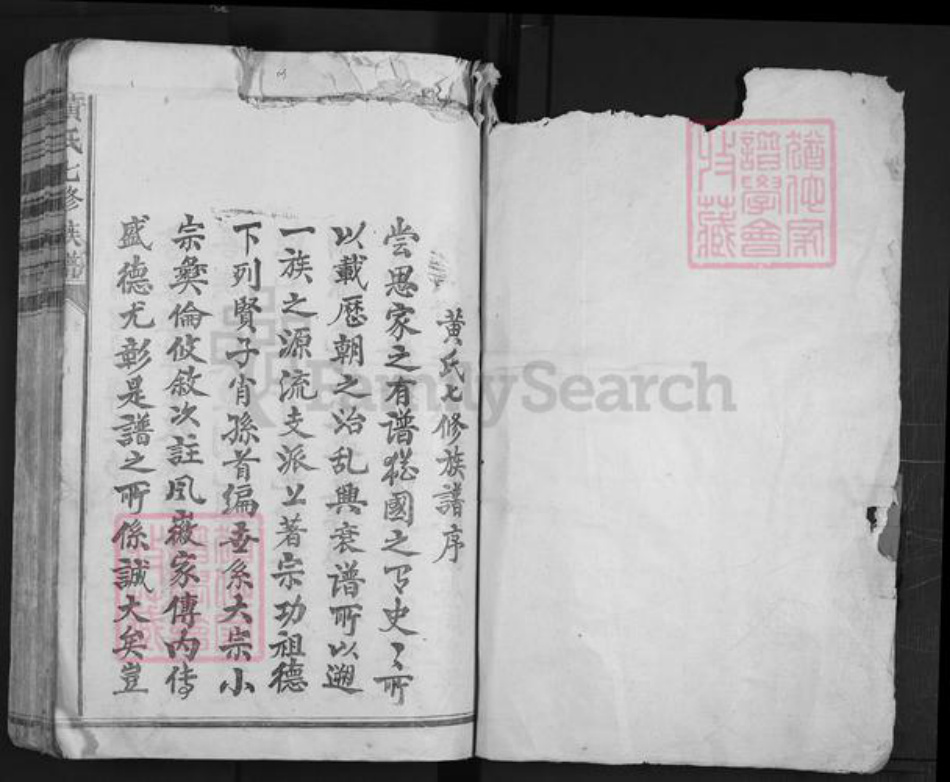 黄氏七修族譜序
尝思家之有谱猶國之有史〻所
以載歷朝之治乱興衰谱所以遡
一族之源流支派上著宗功祖德
下列賢子肖孫首编世系大宗小
宗彝倫攸敘次註凤嶽家傳内传
盛德尤彰是譜之所係誠大矣豈
黃氏七修族譜
猶他家
譜學會
收藏
FamilySearch